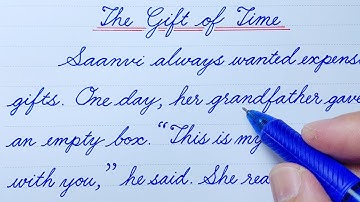 The Gift of Time
Saanvi always wanted
gifts. One day, her grandfather gave
an empty box. "This is my
with you," he said. She